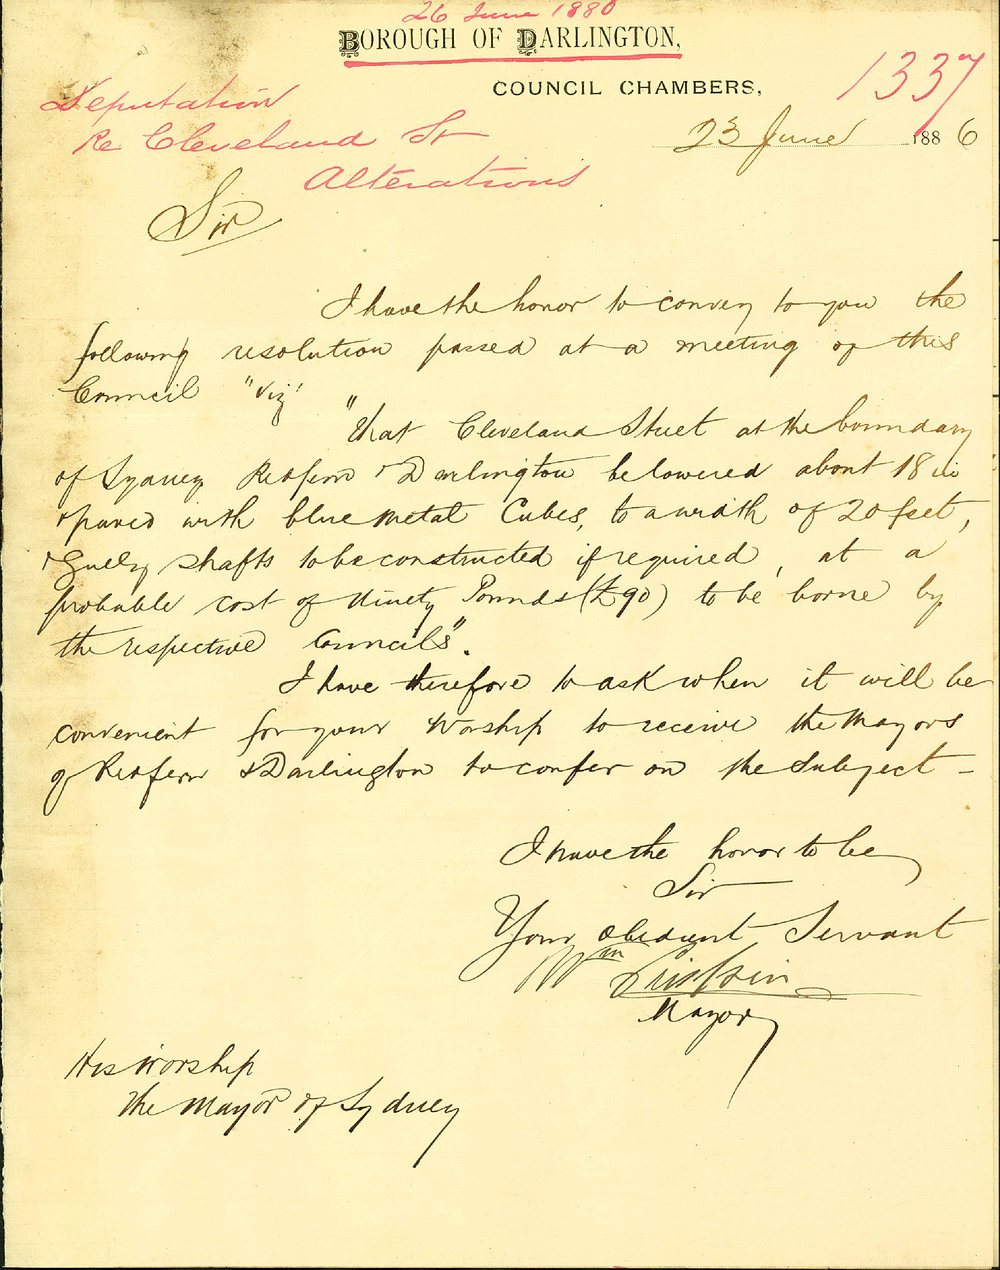 26 June 1886
BOROUGH OF DARLINGTON,
COUNCIL CHAMBERS,
1337
Deputation
Re Cleveland St
Alterations
23 June 1886
Sir
I have the honor to convey to you the
following resolution passed at a meeting of this
Council "Viz"
"That Cleveland Street at the boundary
of Sydney Redfern & Darlington be lowered about 18 in
& paved with blue metal Cubes, to a width of 20 feet,
& Gully shafts to be constructed if required, at a
probable cost of Ninety Pounds (£90) to be borne by
the respective Councils".
I have therefore to ask when it will be
convenient for your Worship to receive the Mayors
of Redfern & Darlington to confer on the subject –
I have the honor to be
Sir
Your obedient Servant
Wm
Mayor
His Worship
The Mayor of Sydney